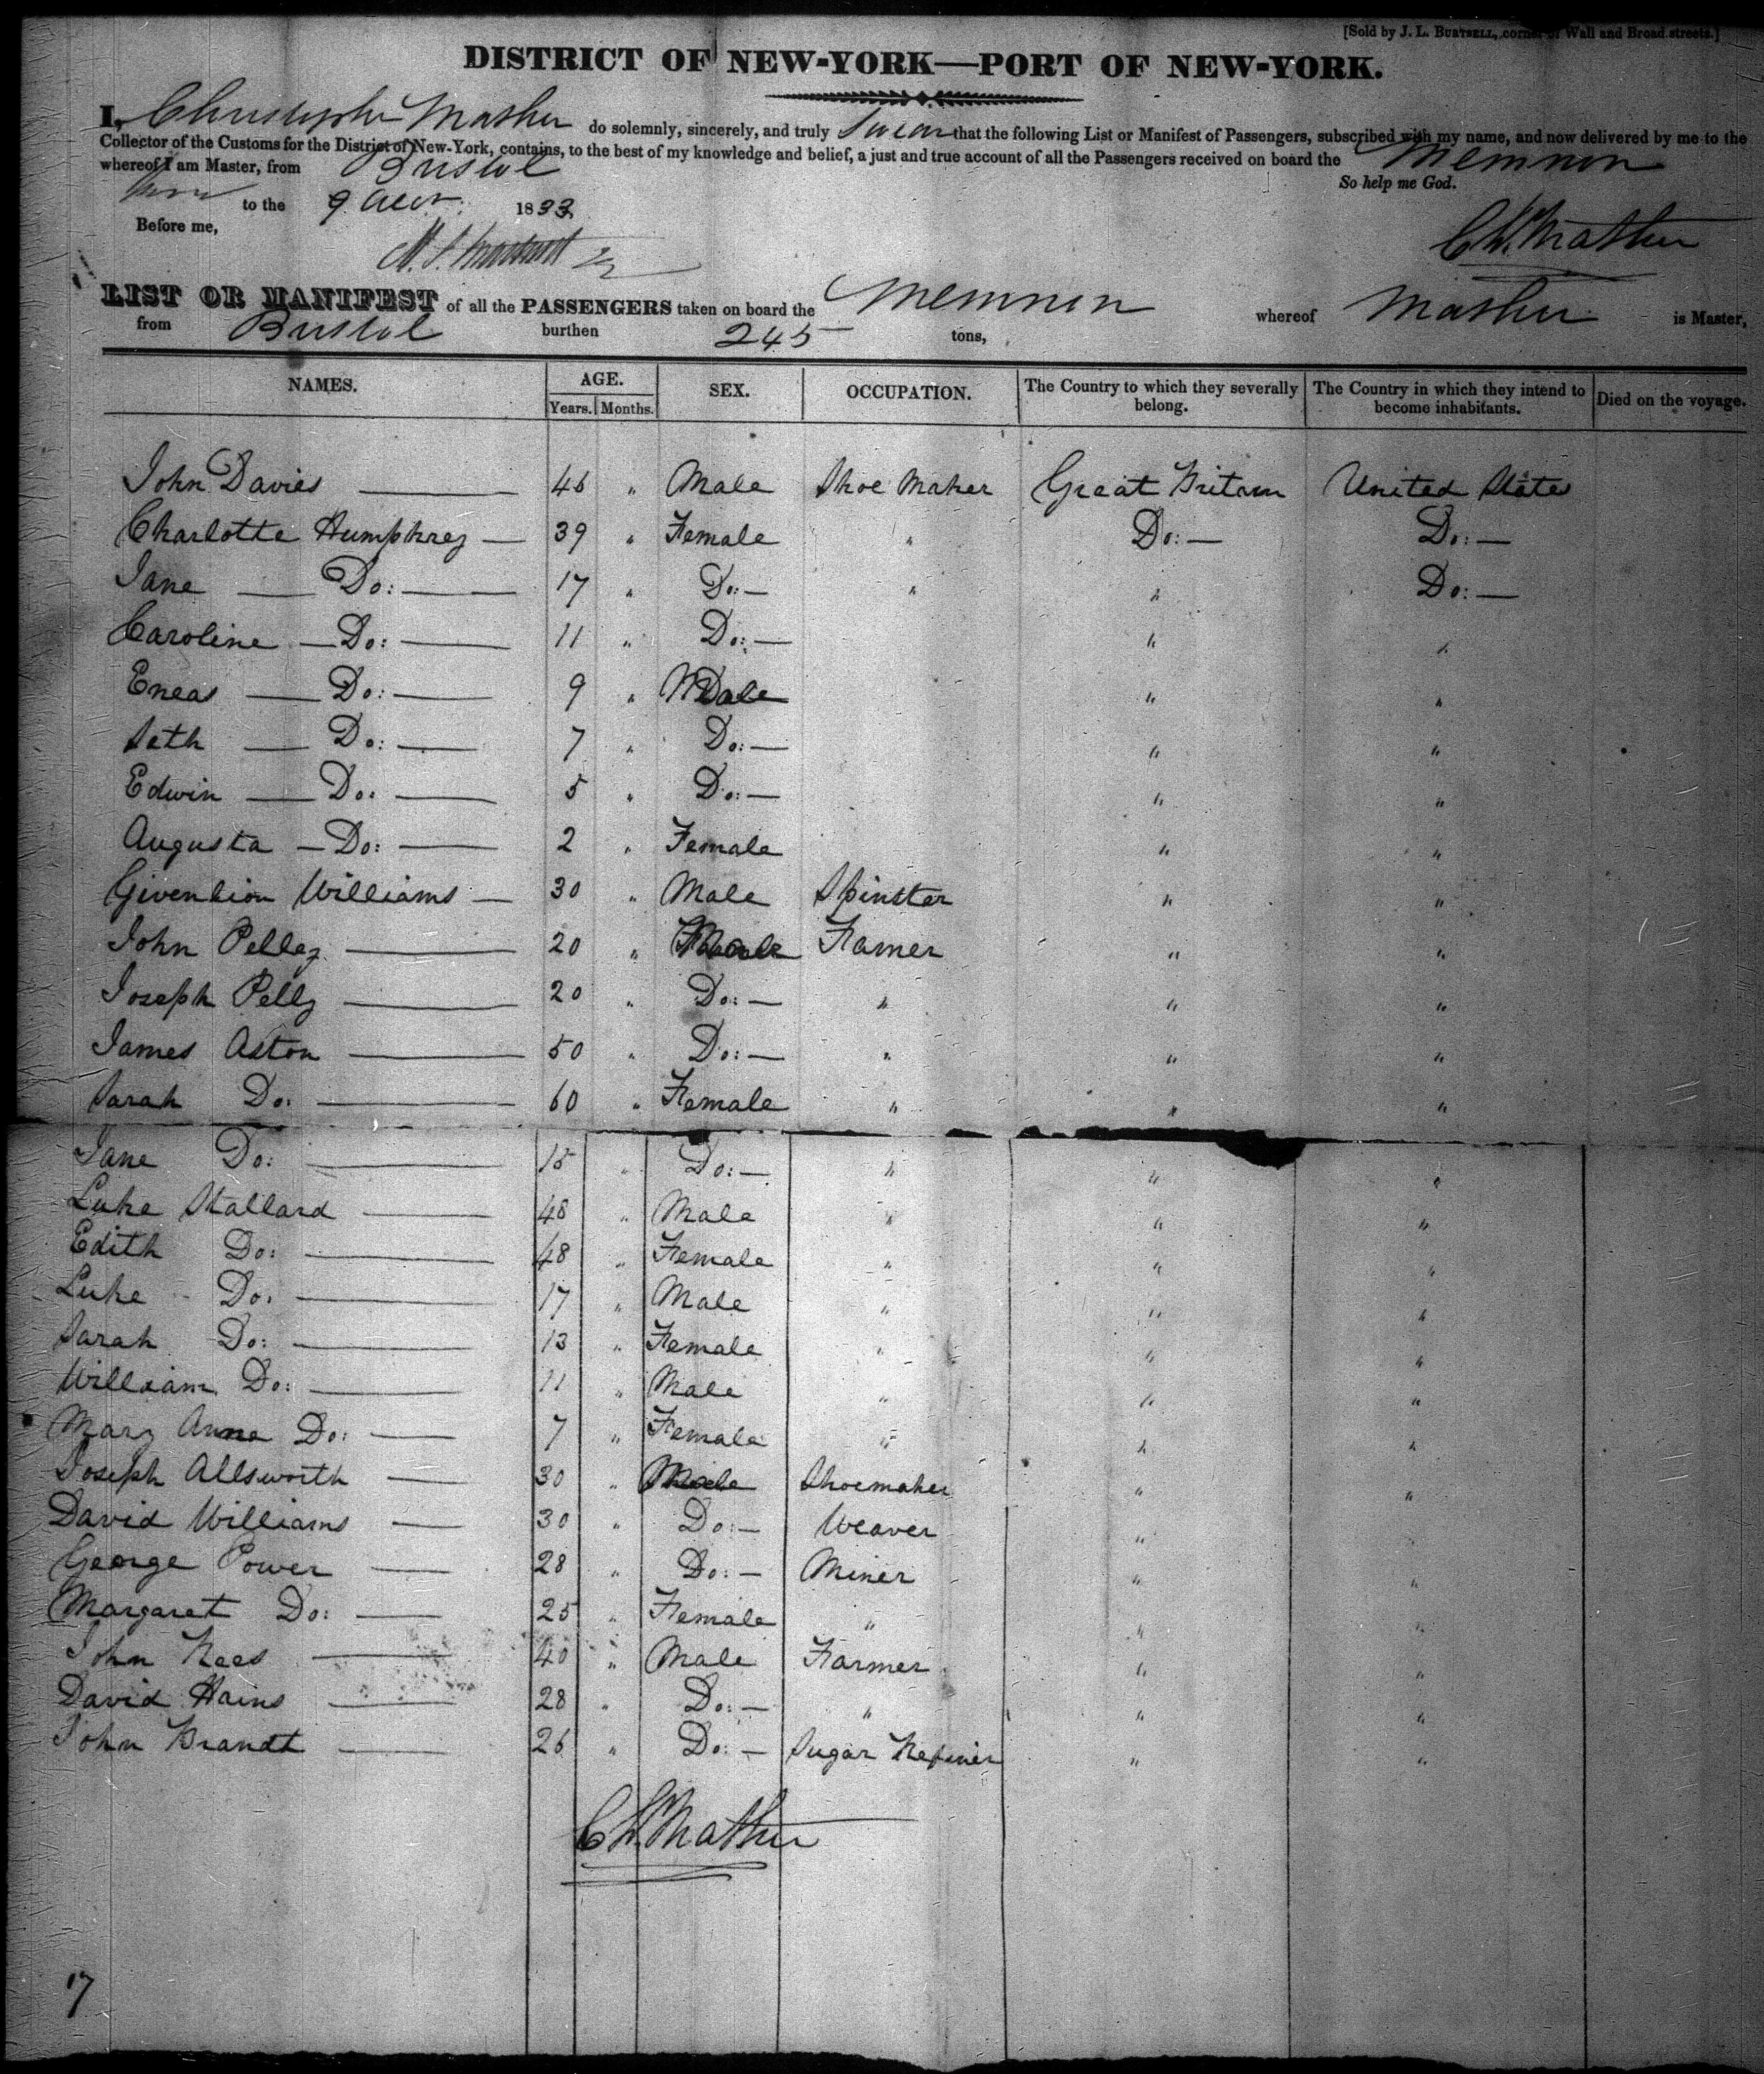 [Sold by J. L. BURTSELL, corner of Wall and Broad streets.]
DISTRICT OF NEW-YORK—PORT OF NEW-YORK.
I, Christopher Mather do solemnly, sincerely, and truly Swear that the following List or Manifest of Passengers, subscribed with my name, and now delivered by me to the
Collector of the Customs for the District of New-York, contains, to the best of my knowledge and belief, a just and true account of all the Passengers received on board the Memnon
whereof I am Master, from Bristol
So help me God.
to the 9 1833
Before me,
Ch. Mather
LIST OR MANIFEST of all the PASSENGERS taken on board the Memnon whereof Mather is Master,
from Bristol burthen 245 tons,
NAMES. AGE. SEX. OCCUPATION. The Country to which they severally belong. The Country in which they intend to become inhabitants. Died on the voyage.
Years. Months.
John Davies — 46 " Male Shoe Maker Great Britain United States
Charlotte Humphrey — 39 " Female " Do: — Do: —
Jane — Do: — 17 " Do: — " " Do: —
Caroline — Do: — 11 " Do: — " "
Eneas — Do: — 9 " Male " "
Seth — Do: — 7 " Do: — " "
Edwin — Do: — 5 " Do: — " "
Augusta — Do: — 2 " Female " "
Givenlion Williams — 30 " Male Spinster " "
John Pelley — 20 " Male Famer " "
Joseph Pelly — 20 " Do: — " " "
James Aston — 50 " Do: — " " "
Sarah Do: — 60 " Female " " "
Jane Do: — 15 " Do: — " " "
Luke Stallard — 48 " Male " " "
Edith Do: — 48 " Female " " "
Luke Do: — 17 " Male " " "
Sarah Do: — 13 " Female " " "
William Do: — 11 " Male " " "
Mary Anne Do: — 7 " Female " " "
Joseph Allsworth — 30 " Male Shoemaker " "
David Williams — 30 " Do: — Weaver " "
George Power — 28 " Do: — Miner " "
Margaret Do: — 25 " Female " " "
John Rees — 40 " Male Farmer " "
David Hains — 28 " Do: — " " "
John Brandt — 26 " Do: — Sugar Refiner " "
Ch. Mather
17